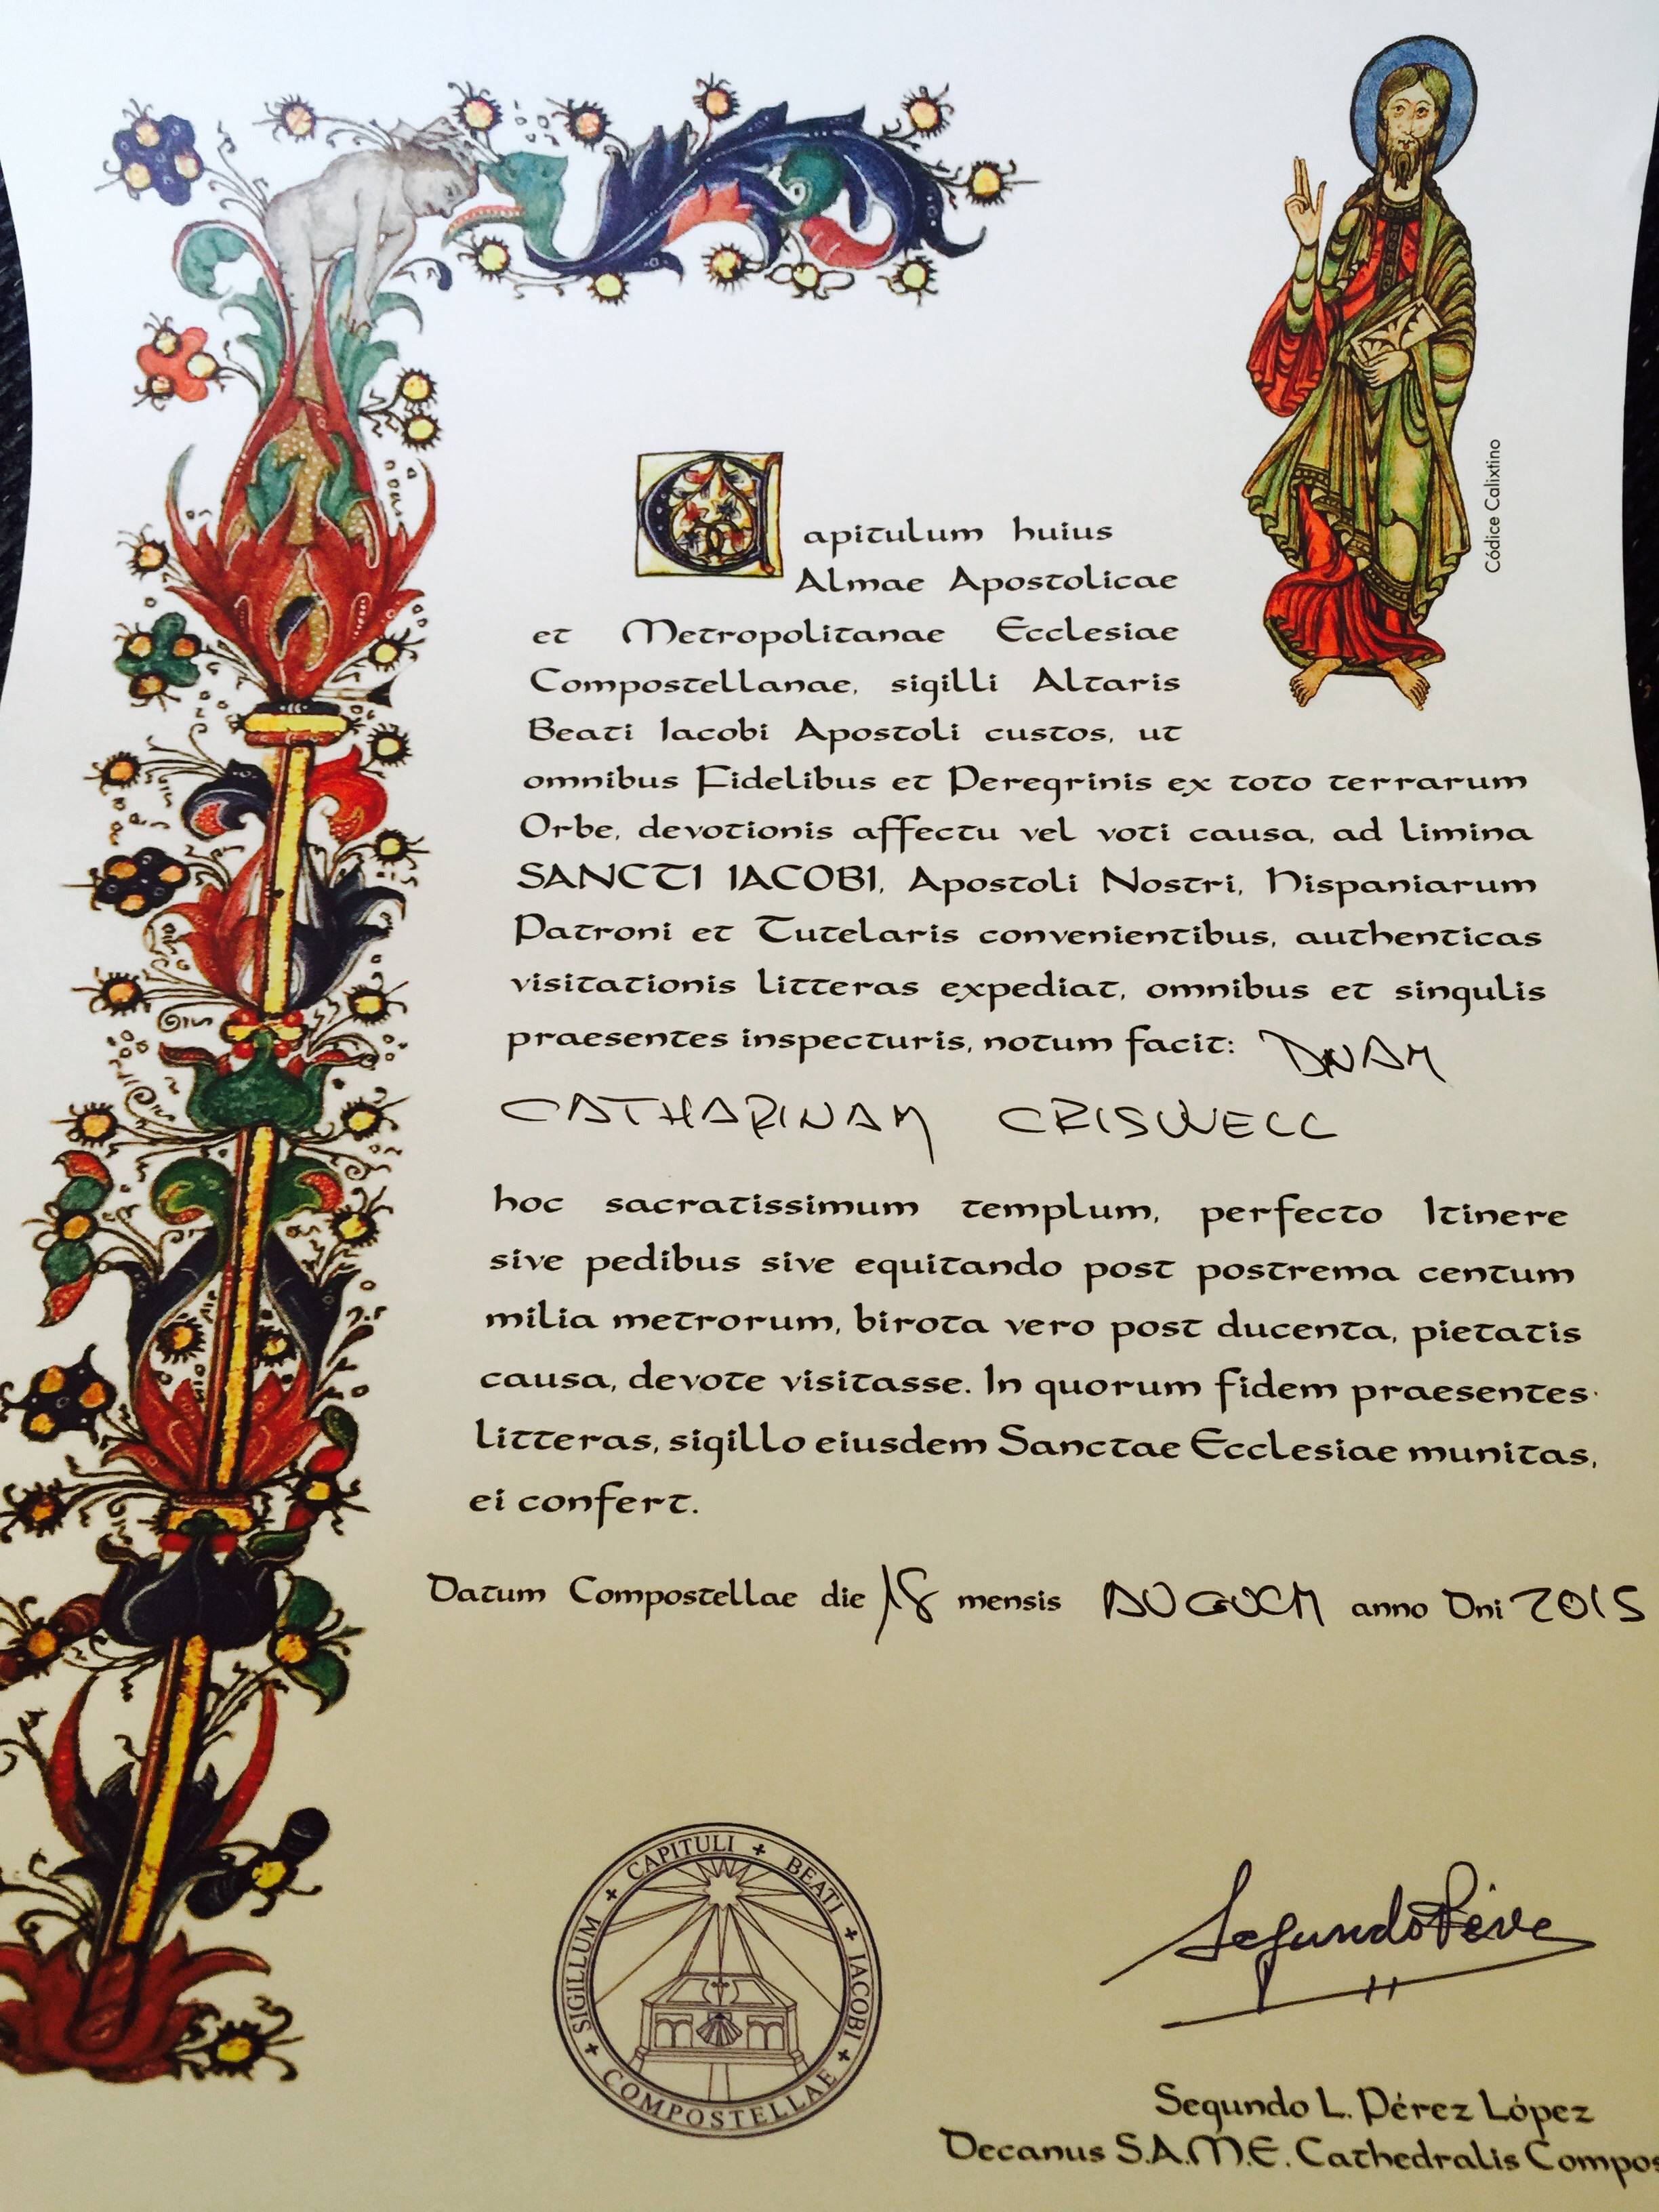 Códice Calixtino
Capitulum huius
Almae Apostolicae
et Metropolitanae Ecclesiae
Compostellanae, sigilli Altaris
Beati Iacobi Apostoli custos, ut
omnibus Fidelibus et Peregrinis ex toto terrarum
Orbe, devotionis affectu vel voti causa, ad limina
SANCTI IACOBI, Apostoli Nostri, Hispaniarum
Patroni et Tutelaris convenientibus, authenticas
visitationis litteras expediat, omnibus et singulis
praesentes inspecturis, notum facit: DNAM
CATHARINAM CRISWELL
hoc sacratissimum templum, perfecto Itinere
sive pedibus sive equitando post postrema centum
milia metrorum, birota vero post ducenta, pietatis
causa, devote visitasse. In quorum fidem praesentes
litteras, sigillo eiusdem Sanctae Ecclesiae munitas,
ei confert.
Datum Compostellae die 18 mensis anno Dni 2015
SIGILLUM + CAPITULI + BEATI + IACOBI + COMPOSTELLAE +
Segundo Pérez
Segundo L. Pérez López
Decanus S.A.M.E. Cathedralis Compos